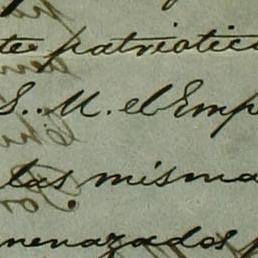 te patriotic
S. M. el Emp
las misma
menazados